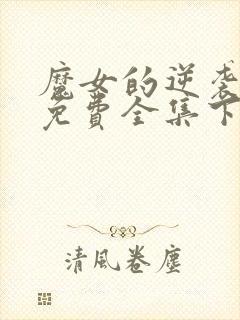 魔女的逆袭
免費全集下
清風卷塵